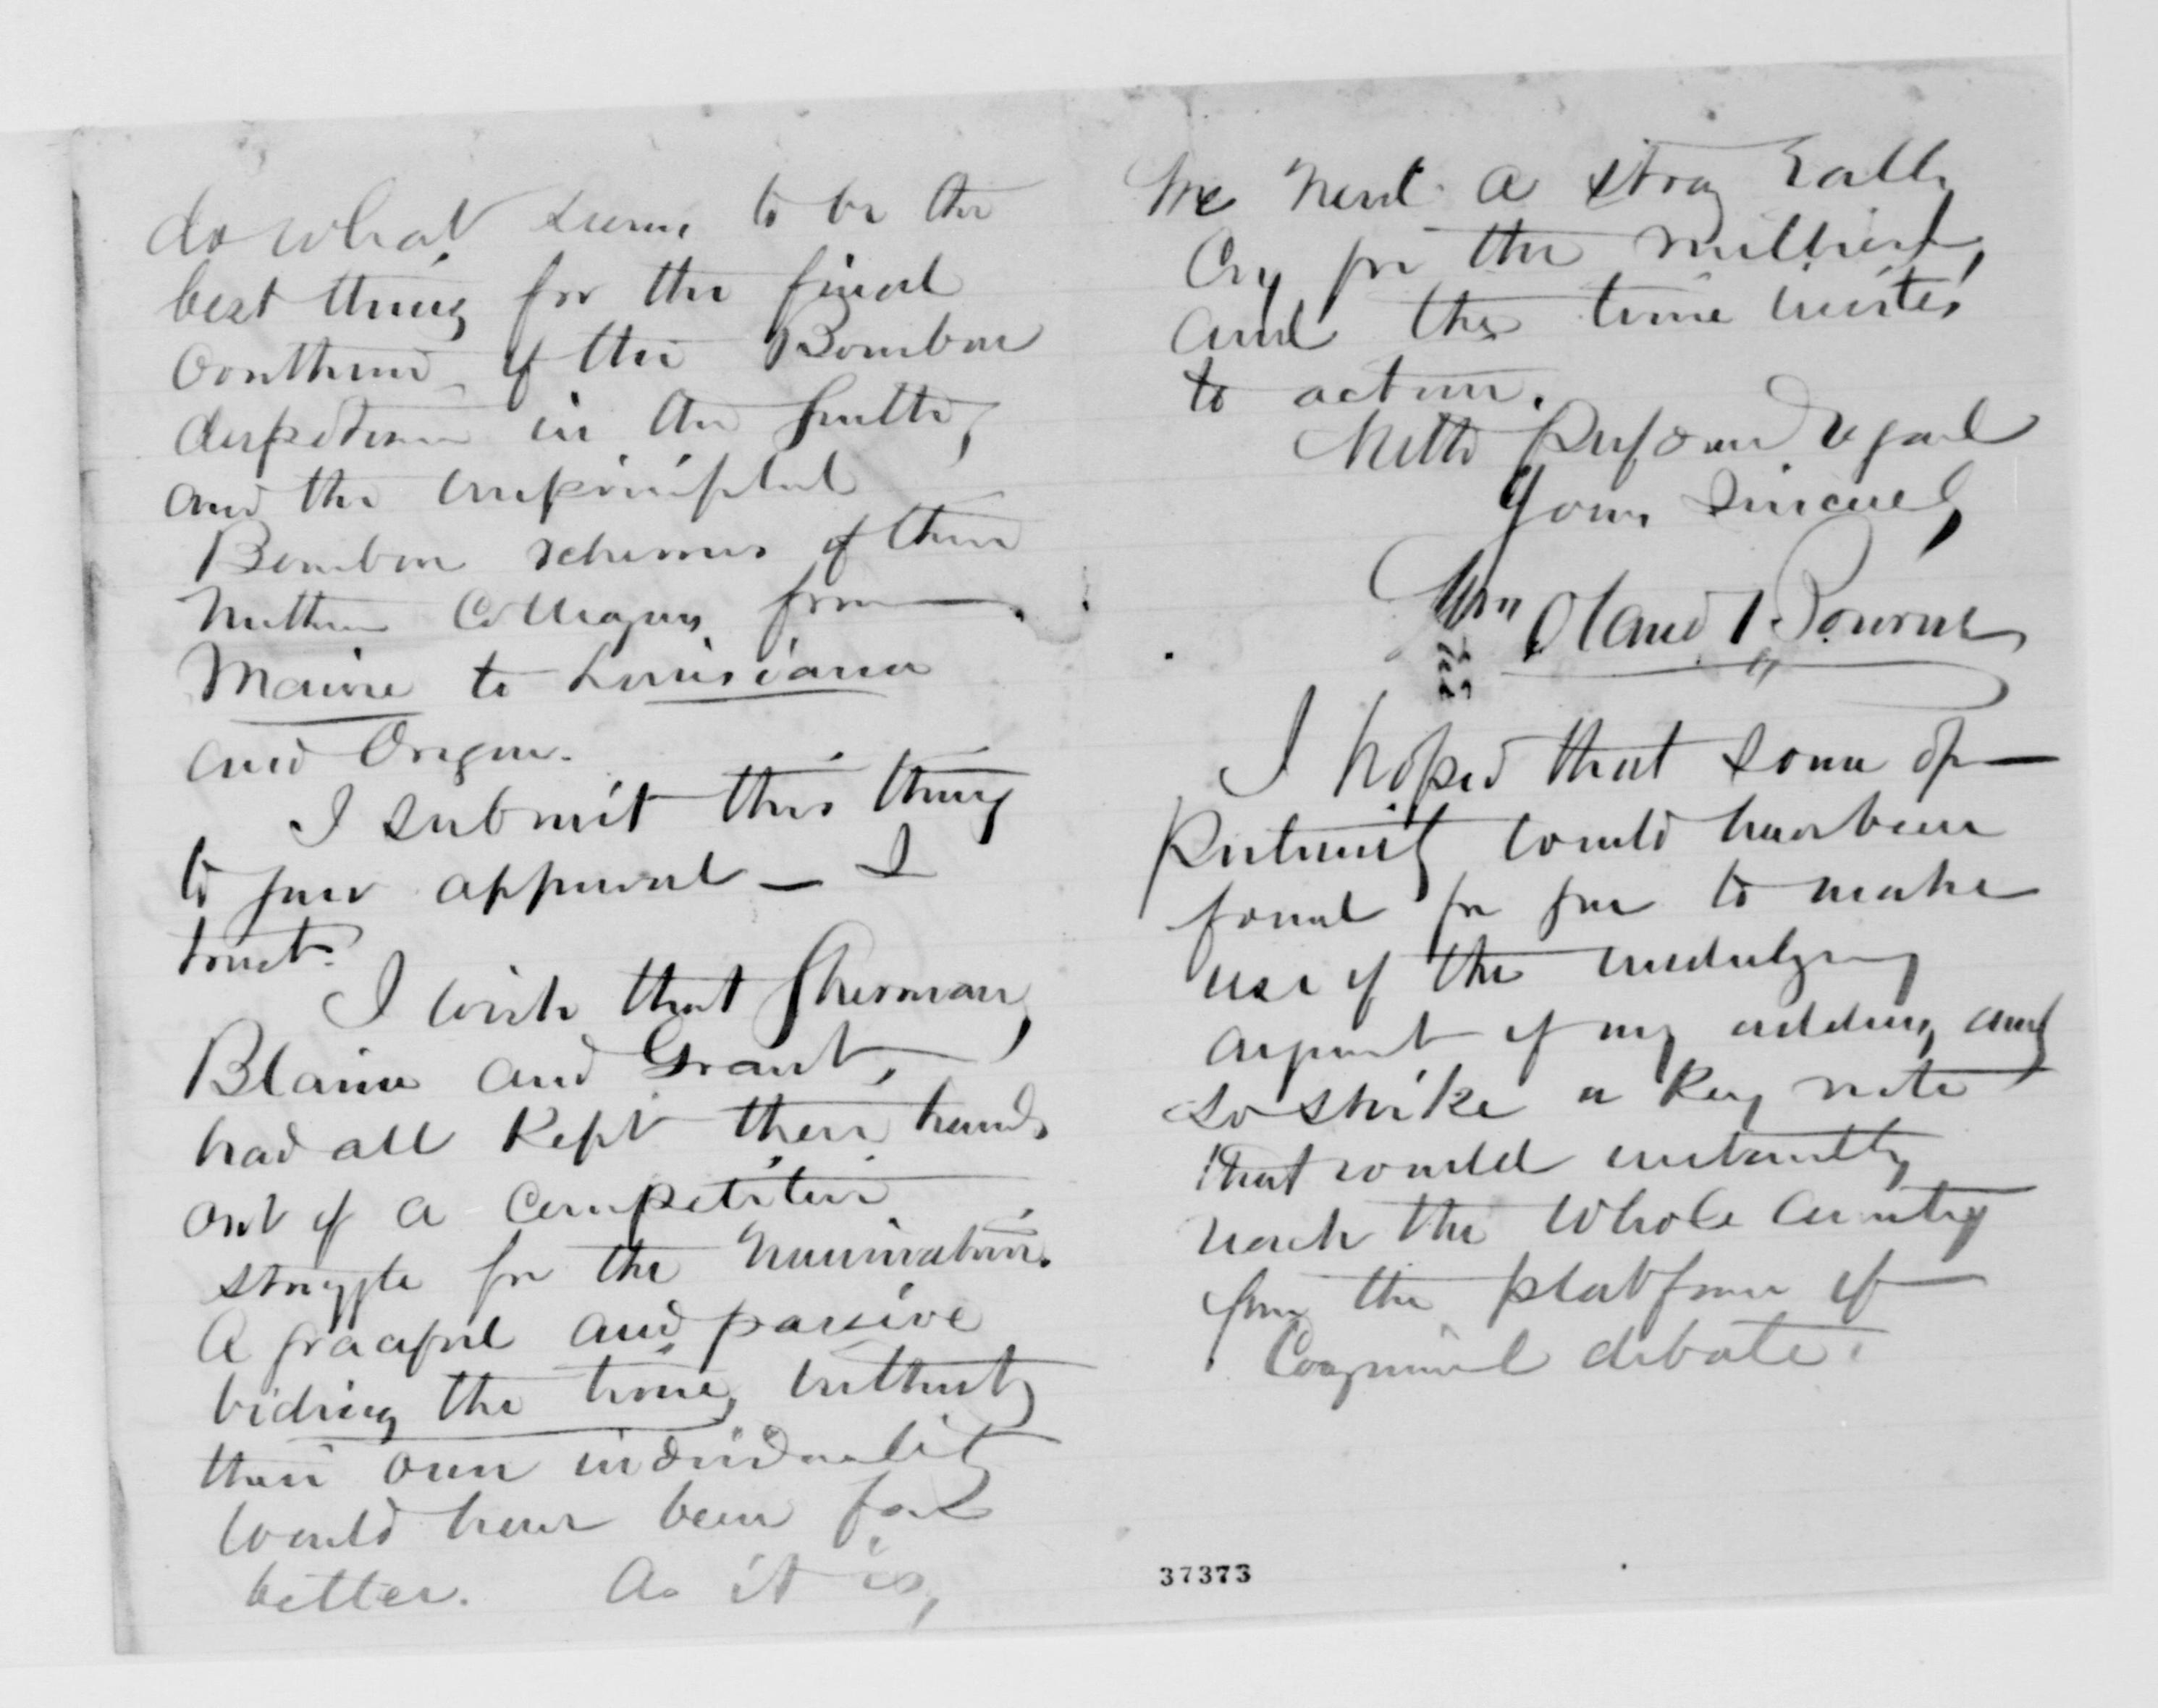 do what seems to be the
best thing for the final
overthrow of the Bourbon
despotism in the South,
and the unprincipled
Bourbon schemes of their
Northern Colleagues from
Maine to Louisiana
and Oregon.
I submit this thing
to your approval — I
trust.
I wish that Sherman,
Blaine and Grant,
had all kept their hands
out of a competitive
struggle for the nomination.
A graceful and passive
biding the time, without
their own individuality
would have been far
better. As it is,
We need a strong rally
Cry for the millions,
and the time invites
to action.
With Profound regard
Yours Sincerely
Wm Oland Bourne
I hoped that some op-
portunity would have been
found for you to make
use of the underlying
argument of my address, and
so strike a Key note
that would instantly
reach the whole Country
from the platform of
Congressional debate.
37373